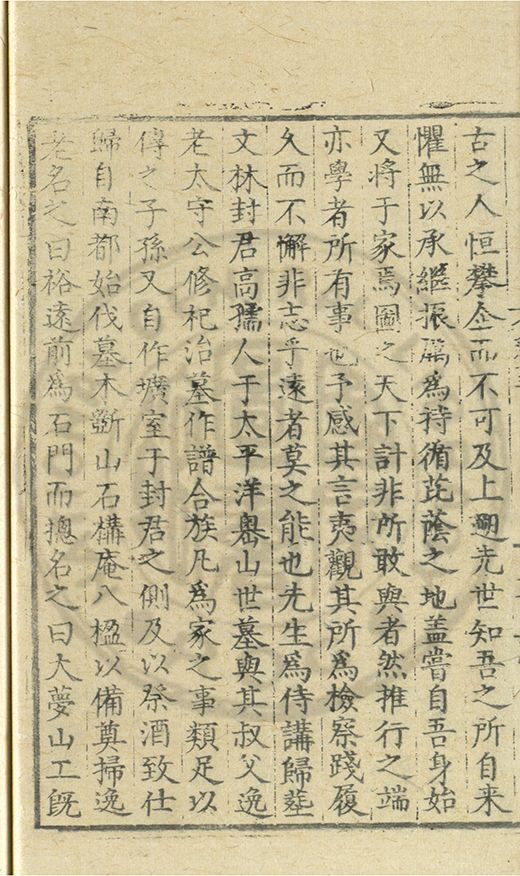 古之人恒攀企而不可及上遡先世知吾之所自来
懼無以承繼振厲為待循芘蔭之地盖嘗自吾身始
又将于家焉圖之天下計非所敢與者然推行之端
亦學者所有事也予感其言夷觀其所為檢察踐履
久而不懈非志乎遠者莫之能也先生為侍講歸塟
文林封君高孺人于太平洋嶴山世墓與其叔父逸
老太守公修祀治墓作譜合族凡為家之事類足以
傳之子孫又自作壙室于封君之側及以祭酒致仕
歸自南都始伐墓木斵山石構庵八楹以備奠掃逸
老名之曰裕遠前為石門而摠名之曰大夢山工既